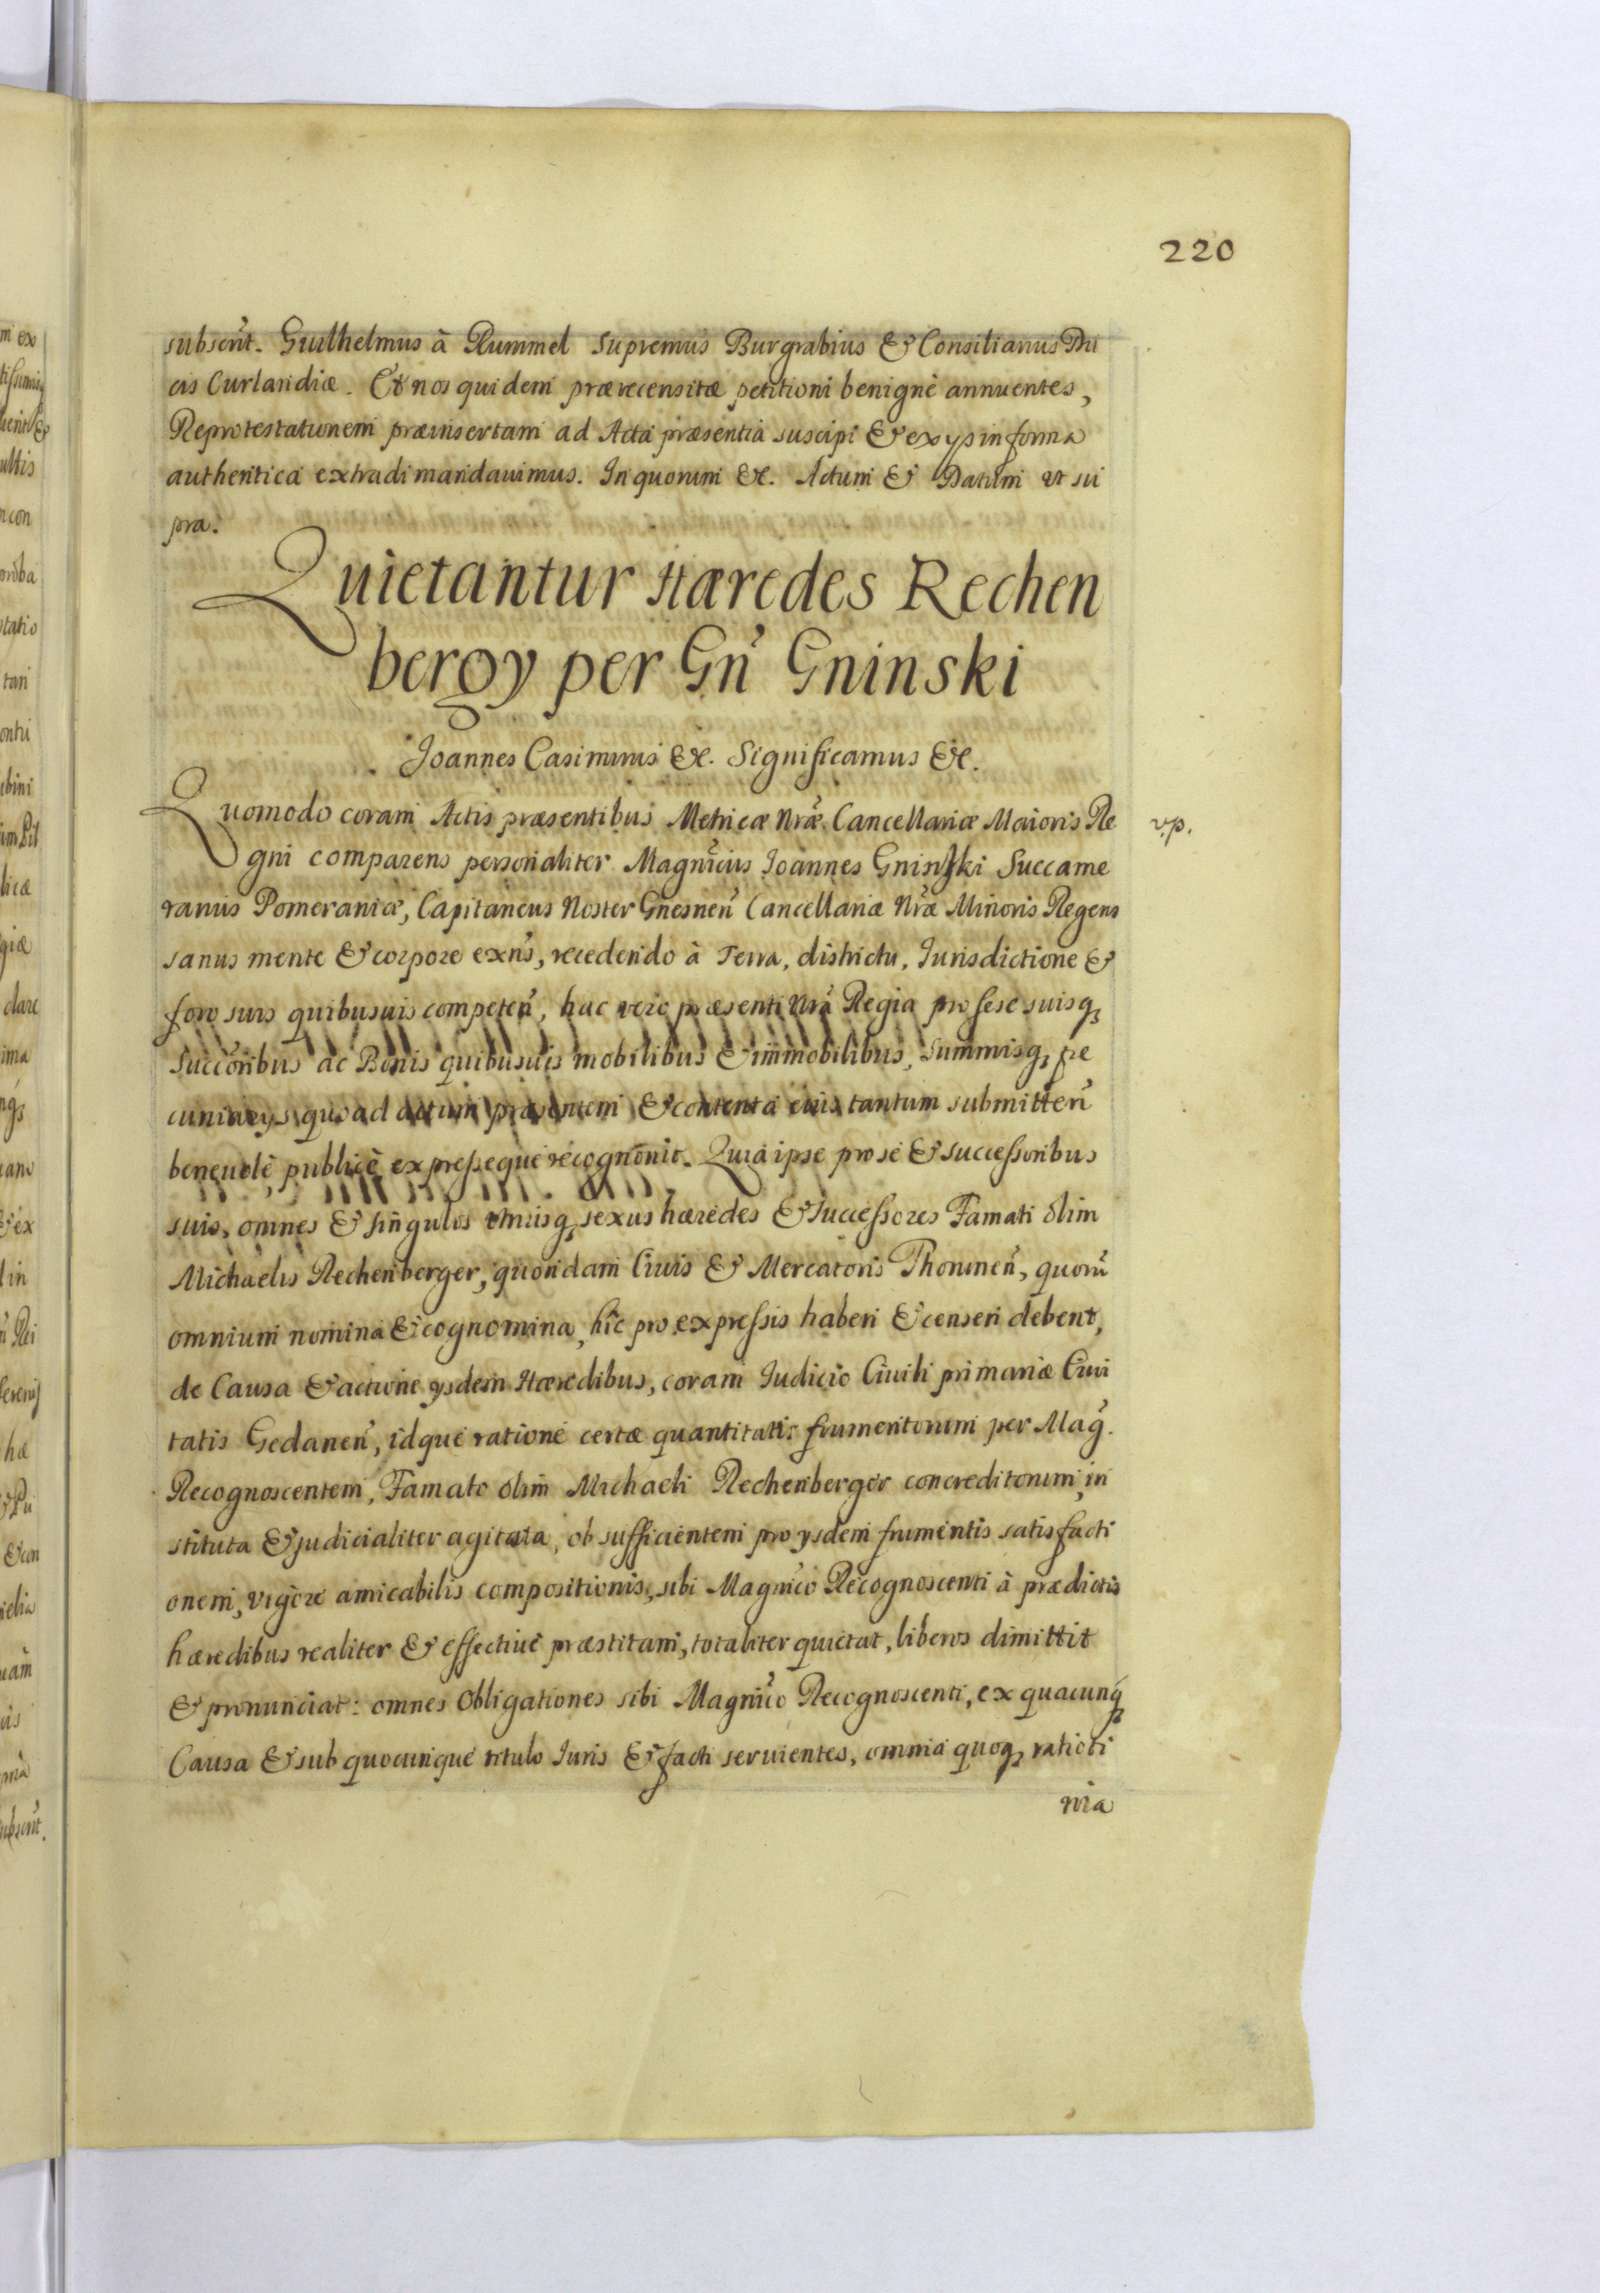 220
subscrīt. Guilhelmus à Rummel Supremus Burgrabius & Consiliarius Du
cis Curlandiæ. Et nos quidem præ recensitæ petitioni benignè annuentes,
Reprotestationem præinsertam ad Acta præsentia suscipi & ex ys in forma
authentica extradi mandauimus. In quorum &c. Actum & Datum vt su
pra.
Quietantur Hæredes Rechen
bergy per Gn̄ Gninski
Joannes Casimirus &c. Significamus &c.
Quomodo coram Actis præsentibus Metricæ Nræ Cancellariæ Maioris Re
v.p.
gni comparens personaliter Magn̄cus Joannes Gninski Succame
rarius Pomeraniæ, Capitaneus Noster Gnesnen̄ Cancellariæ Nræ Minoris Regens
sanus mente & corpore exn̄s, recedendo à Terra, districtu, Jurisdictione &
foro suis quibusuis competen̄, hac vero præsenti Nrā Regia pro sese suisq₃
succōribus ac Bonis quibusuis mobilibus & immobilibus, summisq₃ pe
cuniarys quoad actum præsentem & contenta eius tantum submitten̄
beneuolè publicè expresseque recognouit. Quia ipse pro se & successoribus
suis, omnes & singulos vtriusq₃ sexus hæredes & Successores Famati olim
Michaelis Rechenberger, quondam Ciuis & Mercatoris Thorunen̄, quorū
omnium nomina & cognomina, hîc pro expressis haberi & censeri debent,
de Causa & actione ysdem Hæredibus, coram Judicio Ciuili primariæ Ciui
tatis Gedanen̄, idque ratione certæ quantitatis frumentorum per Mag̃.
Recognoscentem, Famato olim Michaeli Rechenberger concreditorum, in
stituta & judicialiter agitata, ob sufficientem pro ysdem frumentis satisfacti
onem, vigore amicabilis compositionis, sibi Magn̄co Recognoscenti à prædictis
hæredibus realiter & effectiuè præstitam, totaliter quietat, liberos dimittit
& pronunciat: omnes Obligationes sibi Magn̄co Recognoscenti, ex quacunq₃
Causa & sub quocunque titulo Juris & facti seruientes, omnia quoq₃ ratioci
nia